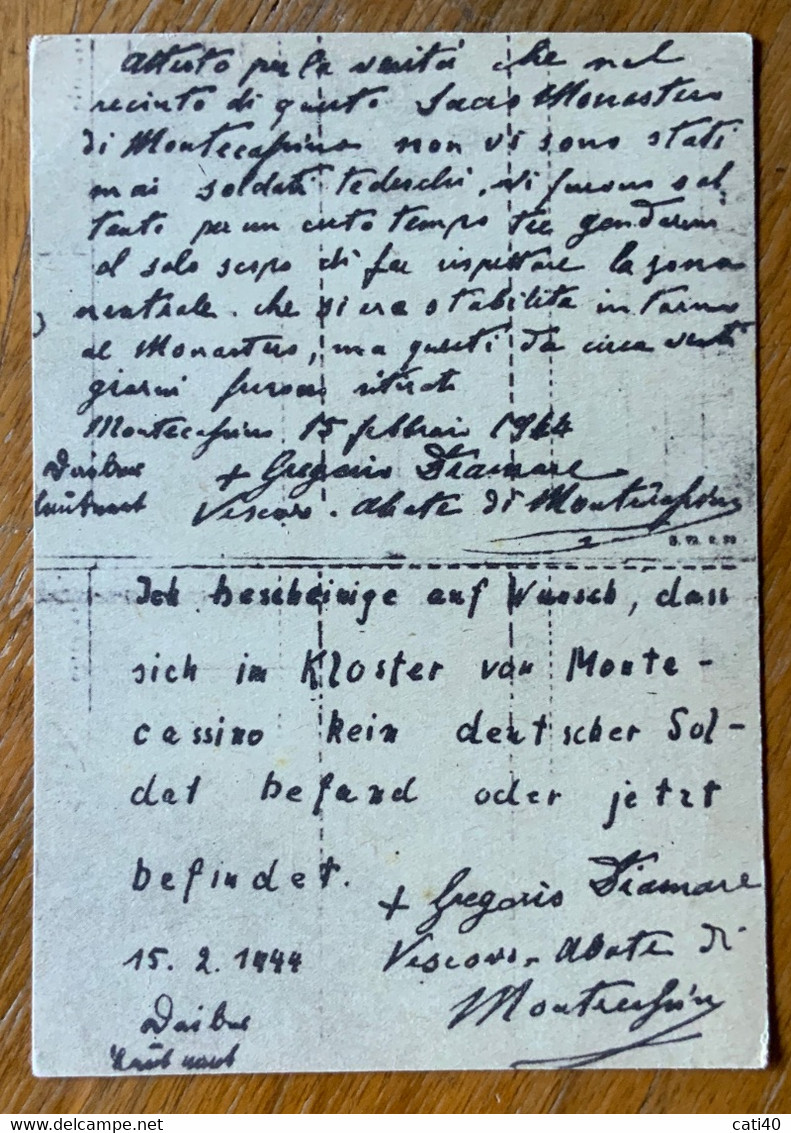 Attesto per la verità che nel
recinto di questo Sacro Monastero
di Montecassino non vi sono stati
mai soldati tedeschi, vi furono sol
tanto per un certo tempo tre gendarmi
al solo scopo di far rispettare la zona
neutrale che si era stabilita intorno
al Monastero, ma questi da circa venti
giorni furono ritirati
Montecassino 15 febbraio 1944
+ Gregorio Diamare
Leutnant
Vescovo - Abate di Montecassino
Ich bescheinige auf Wunsch, dass
sich im Kloster von Monte-
cassino kein deutscher Sol-
dat befand oder jetzt
befindet.
+ Gregorio Diamare
15. 2. 1944
Vescovo - Abate di
Montecassino
Leutnant
cati40